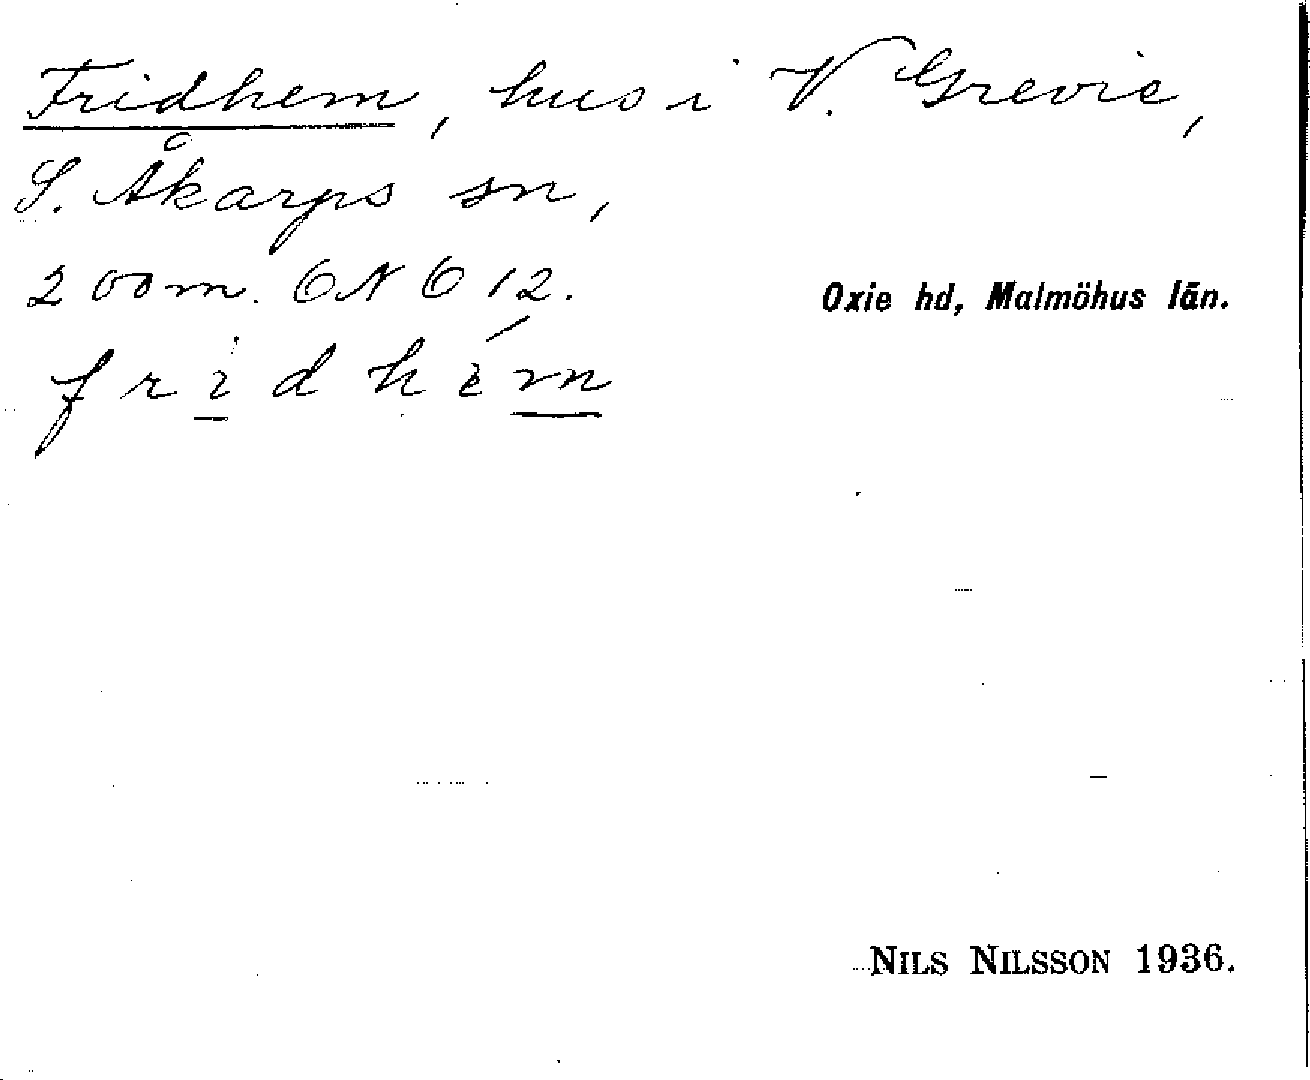 Fridhem, hus i V. Grevie,
S. Åkarps sn,
200 m. ONO 12.
Oxie hd, Malmöhus län.
fridhém
NILS NILSSON 1936.